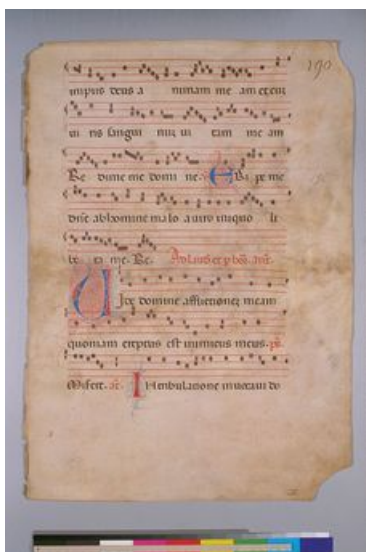 190
impiis deus a nimam me am et cum
ui ris sangui num ui tam me am
Re dime me domi ne. E Ri pe me
dñe ab homine malo a uiro iniquo li
be ra me. Re. Ad laudes et p
Vide domine afflictionem meam
quoniam erectus est inimicus meus. ps.
Miserere. añ. In tribulatione inuocaui do